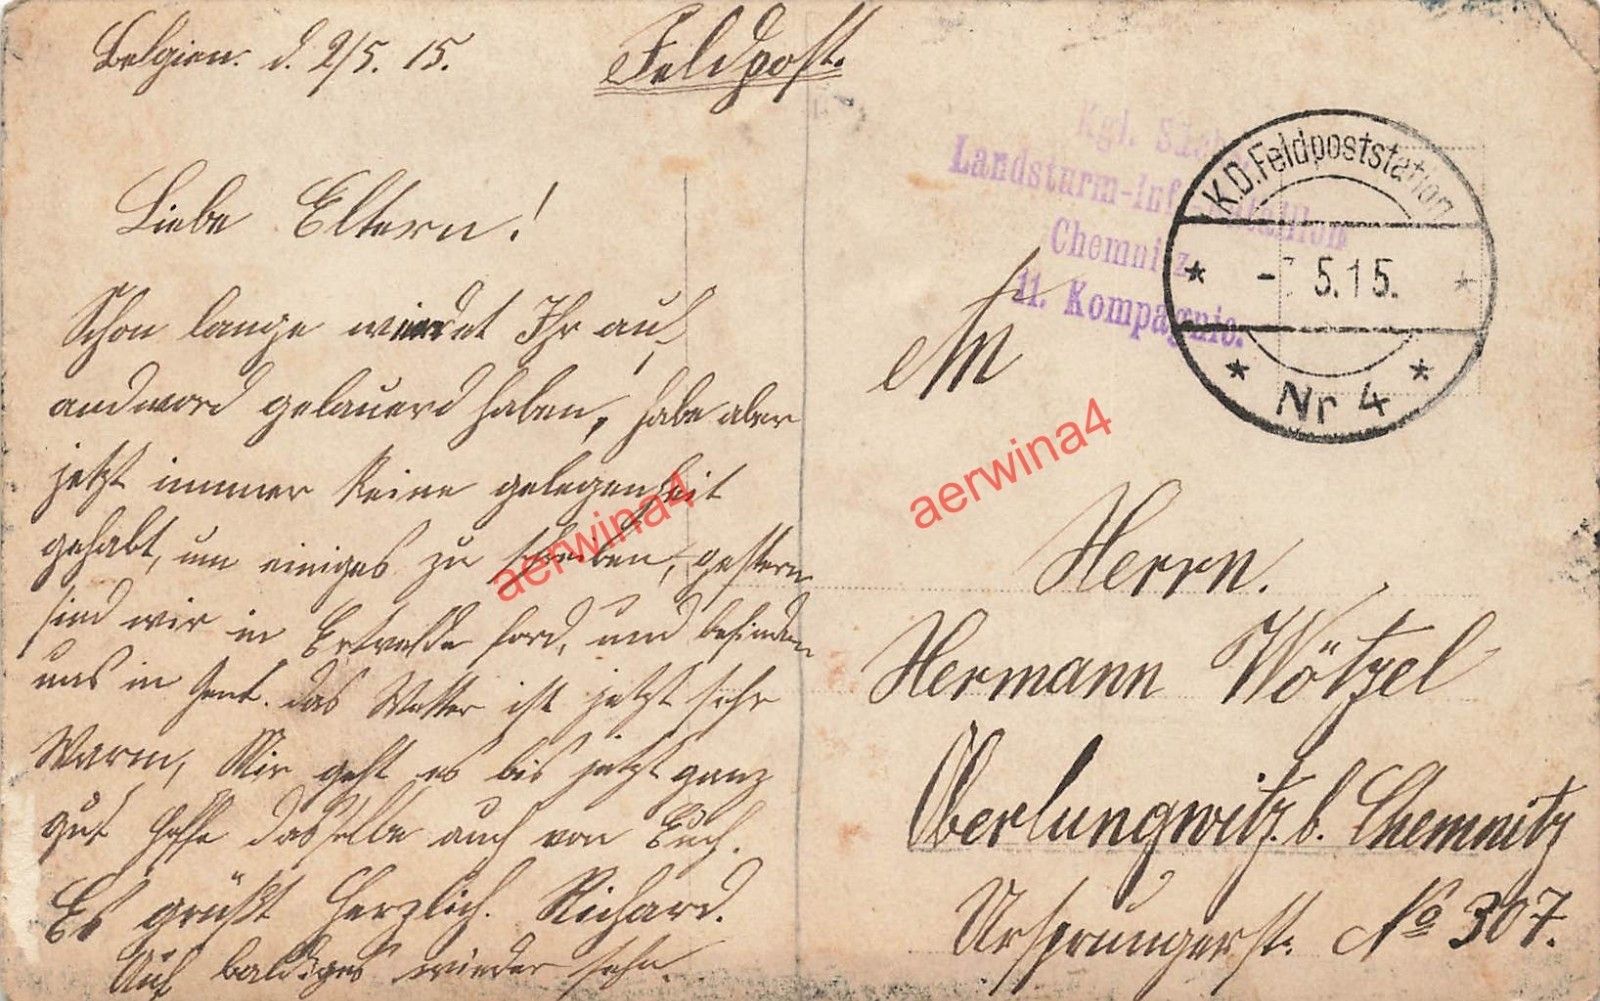 Belgien. d. 2/5. 15.
Feldpost.
Liebe Eltern!
Schon lange werdet Ihr auf
andword gelauerd haben, habe aber
jetzt immer keine gelegenheit
gehabt, um einiges zu schreiben, gestern
sind wir in Ertvelde ford, und befinden
uns in Gent. das Wetter ist jetzt sehr
Warm, Mir geht es bis jetzt ganz
gut hoffe dasselle auch von Euch.
Es grüßt Herzlich. Richard.
Auf baldiges wieder sehn.
Kgl. Sächs.
Landsturm-Inf. Bataillon
Chemnitz
11. Kompagnie.
K.D. Feldpoststation
5.15.
Nr 4
An
Herrn.
Hermann Wötzel
Oberlungwitz. b. Chemnitz
Ursprungerst. No 307.
aerwina4
aerwina4